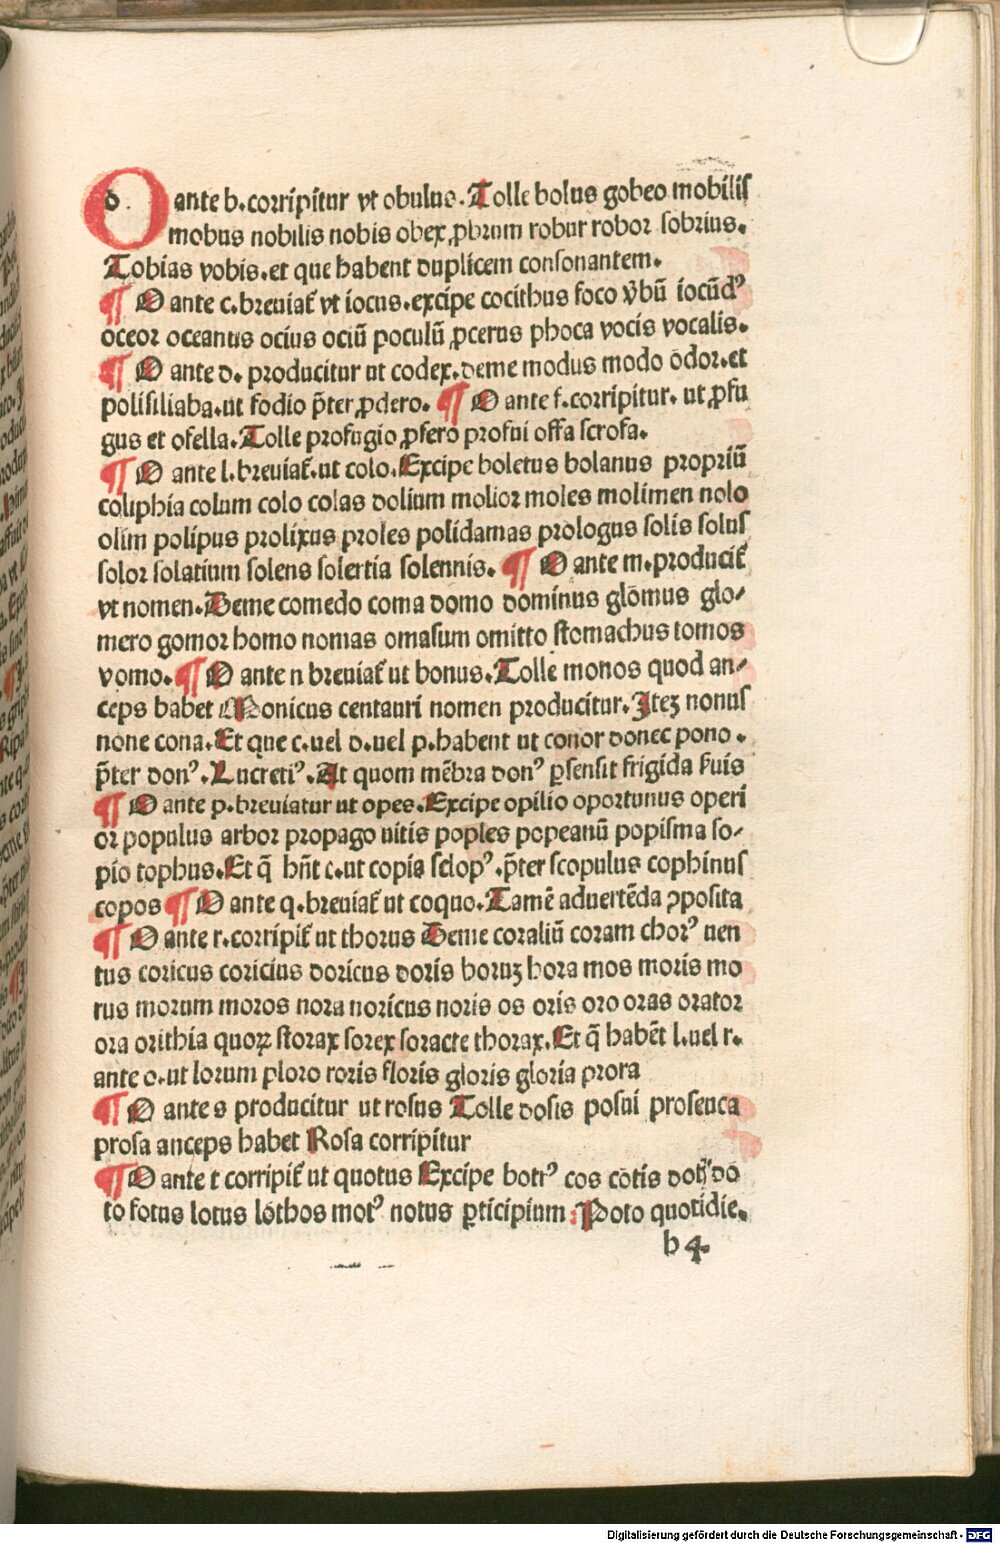 O ante b. corripitur vt obulus. Tolle bolus gobeo mobilis
mobus nobilis nobis obex ꝓbrum robur robor sobrius.
Tobias vobis. et que habent duplicem consonantem.
¶ O ante c. breuiat᷑ vt iocus. excipe cocithus foco v̄bū iocūdꝰ
oceor oceanus ocius ociū poculū ꝓcerus phoca vocis vocalis.
¶ O ante d. producitur ut codex. deme modus modo odor. et
polisiliaba. ut fodio p̄ter ꝓdero. ¶ O ante f. corripitur. ut ꝓfu
gus et ofella. Tolle profugio ꝓfero profui offa scrofa.
¶ O ante l. breuiat᷑. ut colo. Excipe boletus bolanus propriū
coliphia colum colo colas dolium molior moles molimen nolo
olim polipus prolixus proles polidamas prologus solis solus
solor solatium solens solertia solennis. ¶ O ante m. producit᷑
vt nomen. Deme comedo coma domo dominus glomus glo/
mero gomor homo nomas omasum omitto stomachus tomos
vomo. ¶ O ante n breuiat᷑ ut bonus. Tolle monos quod an/
ceps habet Monicus centauri nomen producitur. Itez nonus
none cona. Et que c. uel d. uel p. habent ut conor donec pono.
p̄ter donꝰ. Lucretiꝰ. At quom mēbra donꝰ ꝑsensit frigida
¶ O ante p. breuiatur ut opes. Excipe opilio oportunus operi
or populus arbor propago uitis poples popeanū popisma so/
pio tophus. Et q̄ hn̄t c. ut copia sclopꝰ. p̄ter scopulus cophinus
copos ¶ O ante q. breuiat᷑ ut coquo. Tamē aduertēda ꝓposita
¶ O ante r. corripit᷑ ut thorus Deme coraliū coram chorꝰ uen
tus coricus coricius doricus doris horuz hora mos moris mo
rus morum moros nora noricus noris os oris oro oras orator
ora orithia quoꝝ storax sorex soracte thorax. Et q̄ habēt l. uel r.
ante o. ut lorum ploro roris floris gloris gloria prora
¶ O ante s producitur ut rosus Tolle dosis posui proseuca
prosa anceps habet Rosa corripitur
¶ O ante t corripit᷑ ut quotus Excipe botrꝰ cos cotis do
to fotus lotus lothos motꝰ notus ꝑticipium. Poto quotidie.
b 4.
Digitalisierung gefördert durch die Deutsche Forschungsgemeinschaft - DFG